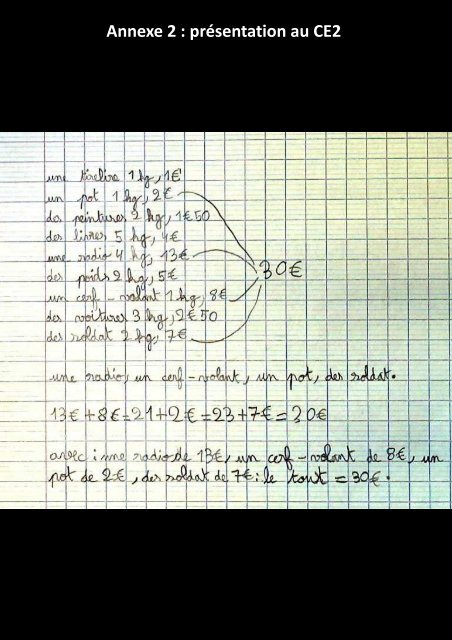 Annexe 2 : présentation au CE2
une tirelire 1 kg, 1€
un pot 1 kg, 2€
des peintures 2 kg, 1€50
des livres 5 kg, 4€
une radio 4 kg, 13€
des poids 2 kg, 5€
un cerf-volant 1 kg, 8€
des voitures 3 kg, 2€50
des soldat 2 kg, 7€
30€
une radio, un cerf-volant, un pot, des soldat.
13€+8€=21+2€=23+7€=30€
avec : une radio de 13€, un cerf-volant de 8€, un
pot de 2€, des soldat de 7€ : le tout = 30€.